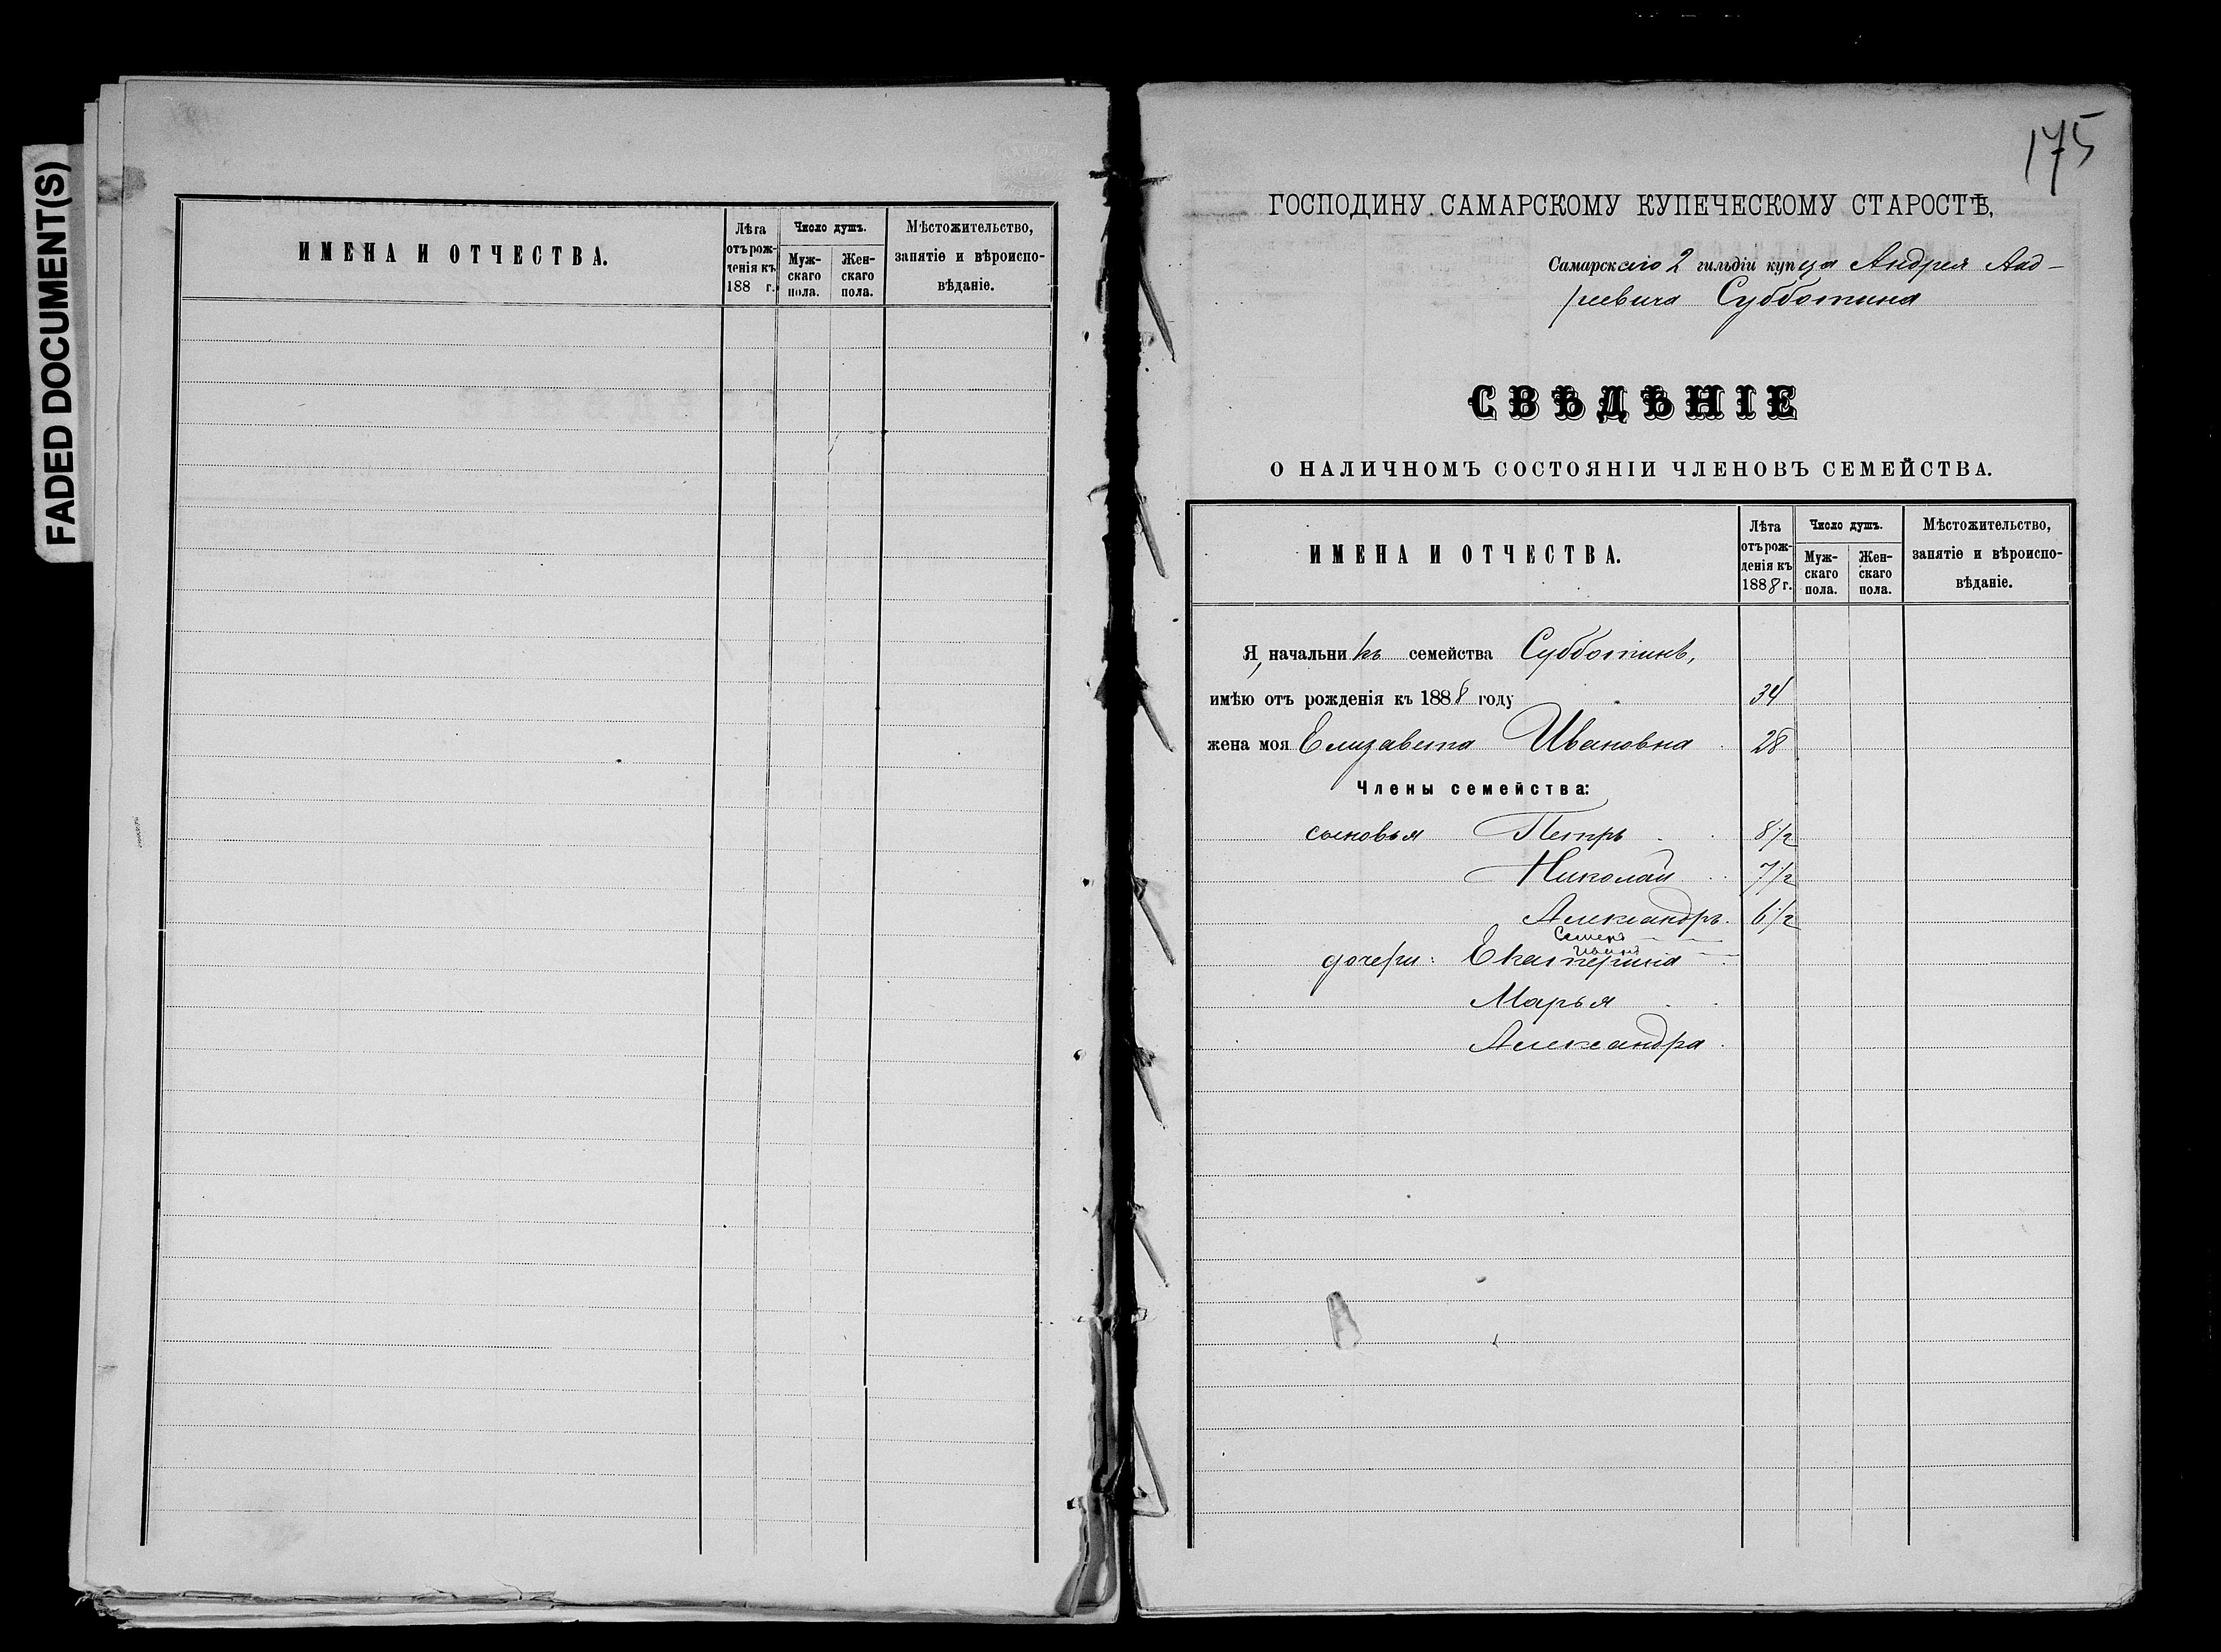 FADED DOCUMENT(S)
ИМЕНА И ОТЧЕСТВА.
Лѣта отъ рожденія къ 188 г.
Число душъ.
Мужскаго пола.
Женскаго пола.
Мѣстожительство, занятіе и вѣроисповѣданіе.
175
ГОСПОДИНУ САМАРСКОМУ КУПЕЧЕСКОМУ СТАРОСТѢ,
Самарскаго 2 гильдіи купца Андрея Анд-
реевича Субботина
СВѢДѢНІЕ
О НАЛИЧНОМЪ СОСТОЯНІИ ЧЛЕНОВЪ СЕМЕЙСТВА.
ИМЕНА И ОТЧЕСТВА.
Лѣта отъ рожденія къ 1888 г.
Число душъ.
Мужскаго пола.
Женскаго пола.
Мѣстожительство, занятіе и вѣроисповѣданіе.
Я, начальникъ семейства Субботинъ,
имѣю отъ рожденія къ 1888 году 34
жена моя Елизавета Ивановна 28
Члены семейства:
сыновья Петръ 8 1/2
Николай 7 1/2
Александръ 6 1/2
Семенъ
Иванъ
дочери: Екатерина
Марья
Александра